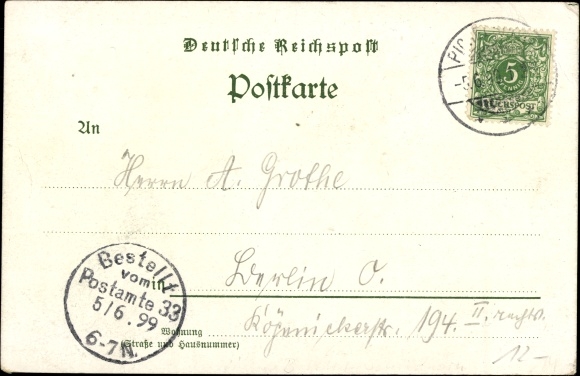 Deutsche Reichspost
Postkarte
An
Herrn A. Grothe
Berlin O.
in
Köpenickerstr. 194. II. rechts.
Wohnung
(Straße und Hausnummer)
Bestellt
vom
Postamte 33
5/6.99
6-7N.
5
REICHSPOST
12-